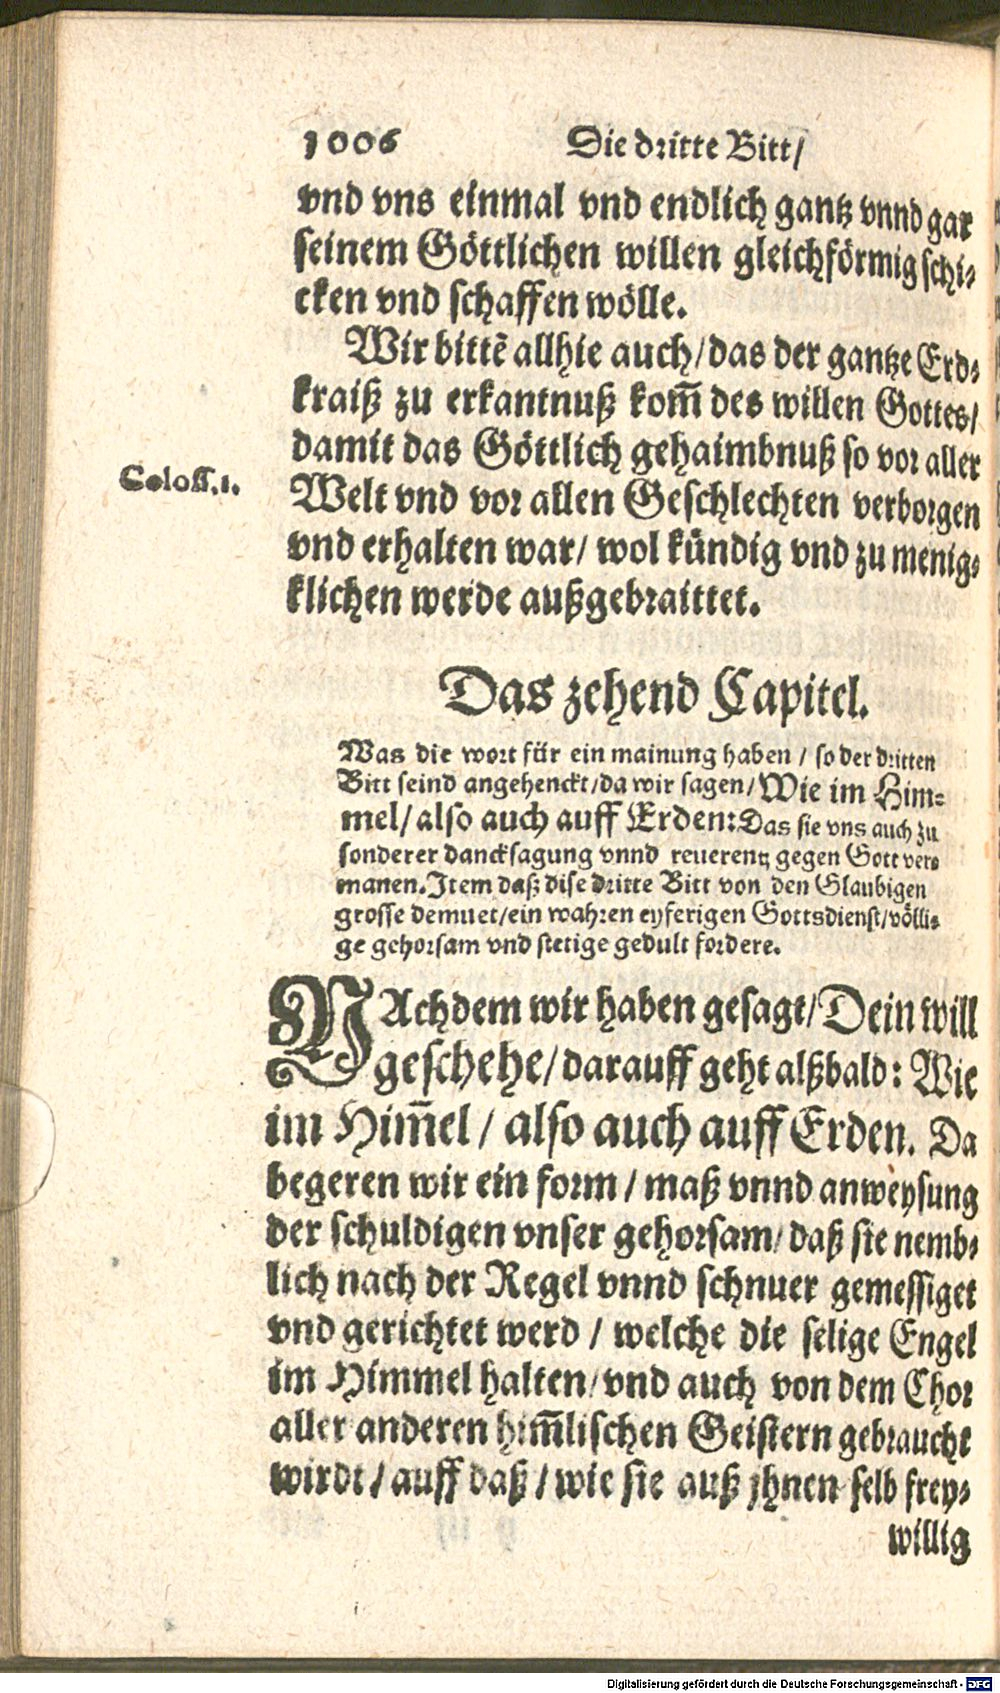 1006 Die dritte Bitt/
vnd vns einmal vnd endlich gantz vnnd gar
seinem Göttlichen willen gleichförmig schi-
cken vnd schaffen wölle.
Wir bittẽ allhie auch/das der gantze Erd-
kraiß zu erkantnuß kom̃ des willen Gottes/
damit das Göttlich gehaimbnuß so vor aller
Coloss.1.
Welt vnd vor allen Geschlechten verborgen
vnd erhalten war/ wol kündig vnd zu menig-
klichen werde außgebraittet.
Das zehend Capitel.
Was die wort für ein mainung haben / so der dritten
Bitt seind angehenckt/da wir sagen/Wie im Him-
mel/also auch auff Erden:Das sie vns auch zu
sonderer dancksagung vnnd reuerentz gegen Gott ver-
manen.Item daß dise dritte Bitt von den Glaubigen
grosse demuet/ein wahren eyferigen Gottsdienst/völli-
ge gehorsam vnd stetige gedult fordere.
NAchdem wir haben gesagt/Dein will
geschehe/darauff geht alßbald: Wie
im Him̃el / also auch auff Erden. Da
begeren wir ein form / maß vnnd anweysung
der schuldigen vnser gehorsam/daß sie nemb-
lich nach der Regel vnnd schnuer gemessiget
vnd gerichtet werd / welche die selige Engel
im Himmel halten/vnd auch von dem Chor
aller anderen him̃lischen Geistern gebraucht
wirdt / auff daß / wie sie auß jhnen selb frey-
willig
Digitalisierung gefördert durch die Deutsche Forschungsgemeinschaft - DFG